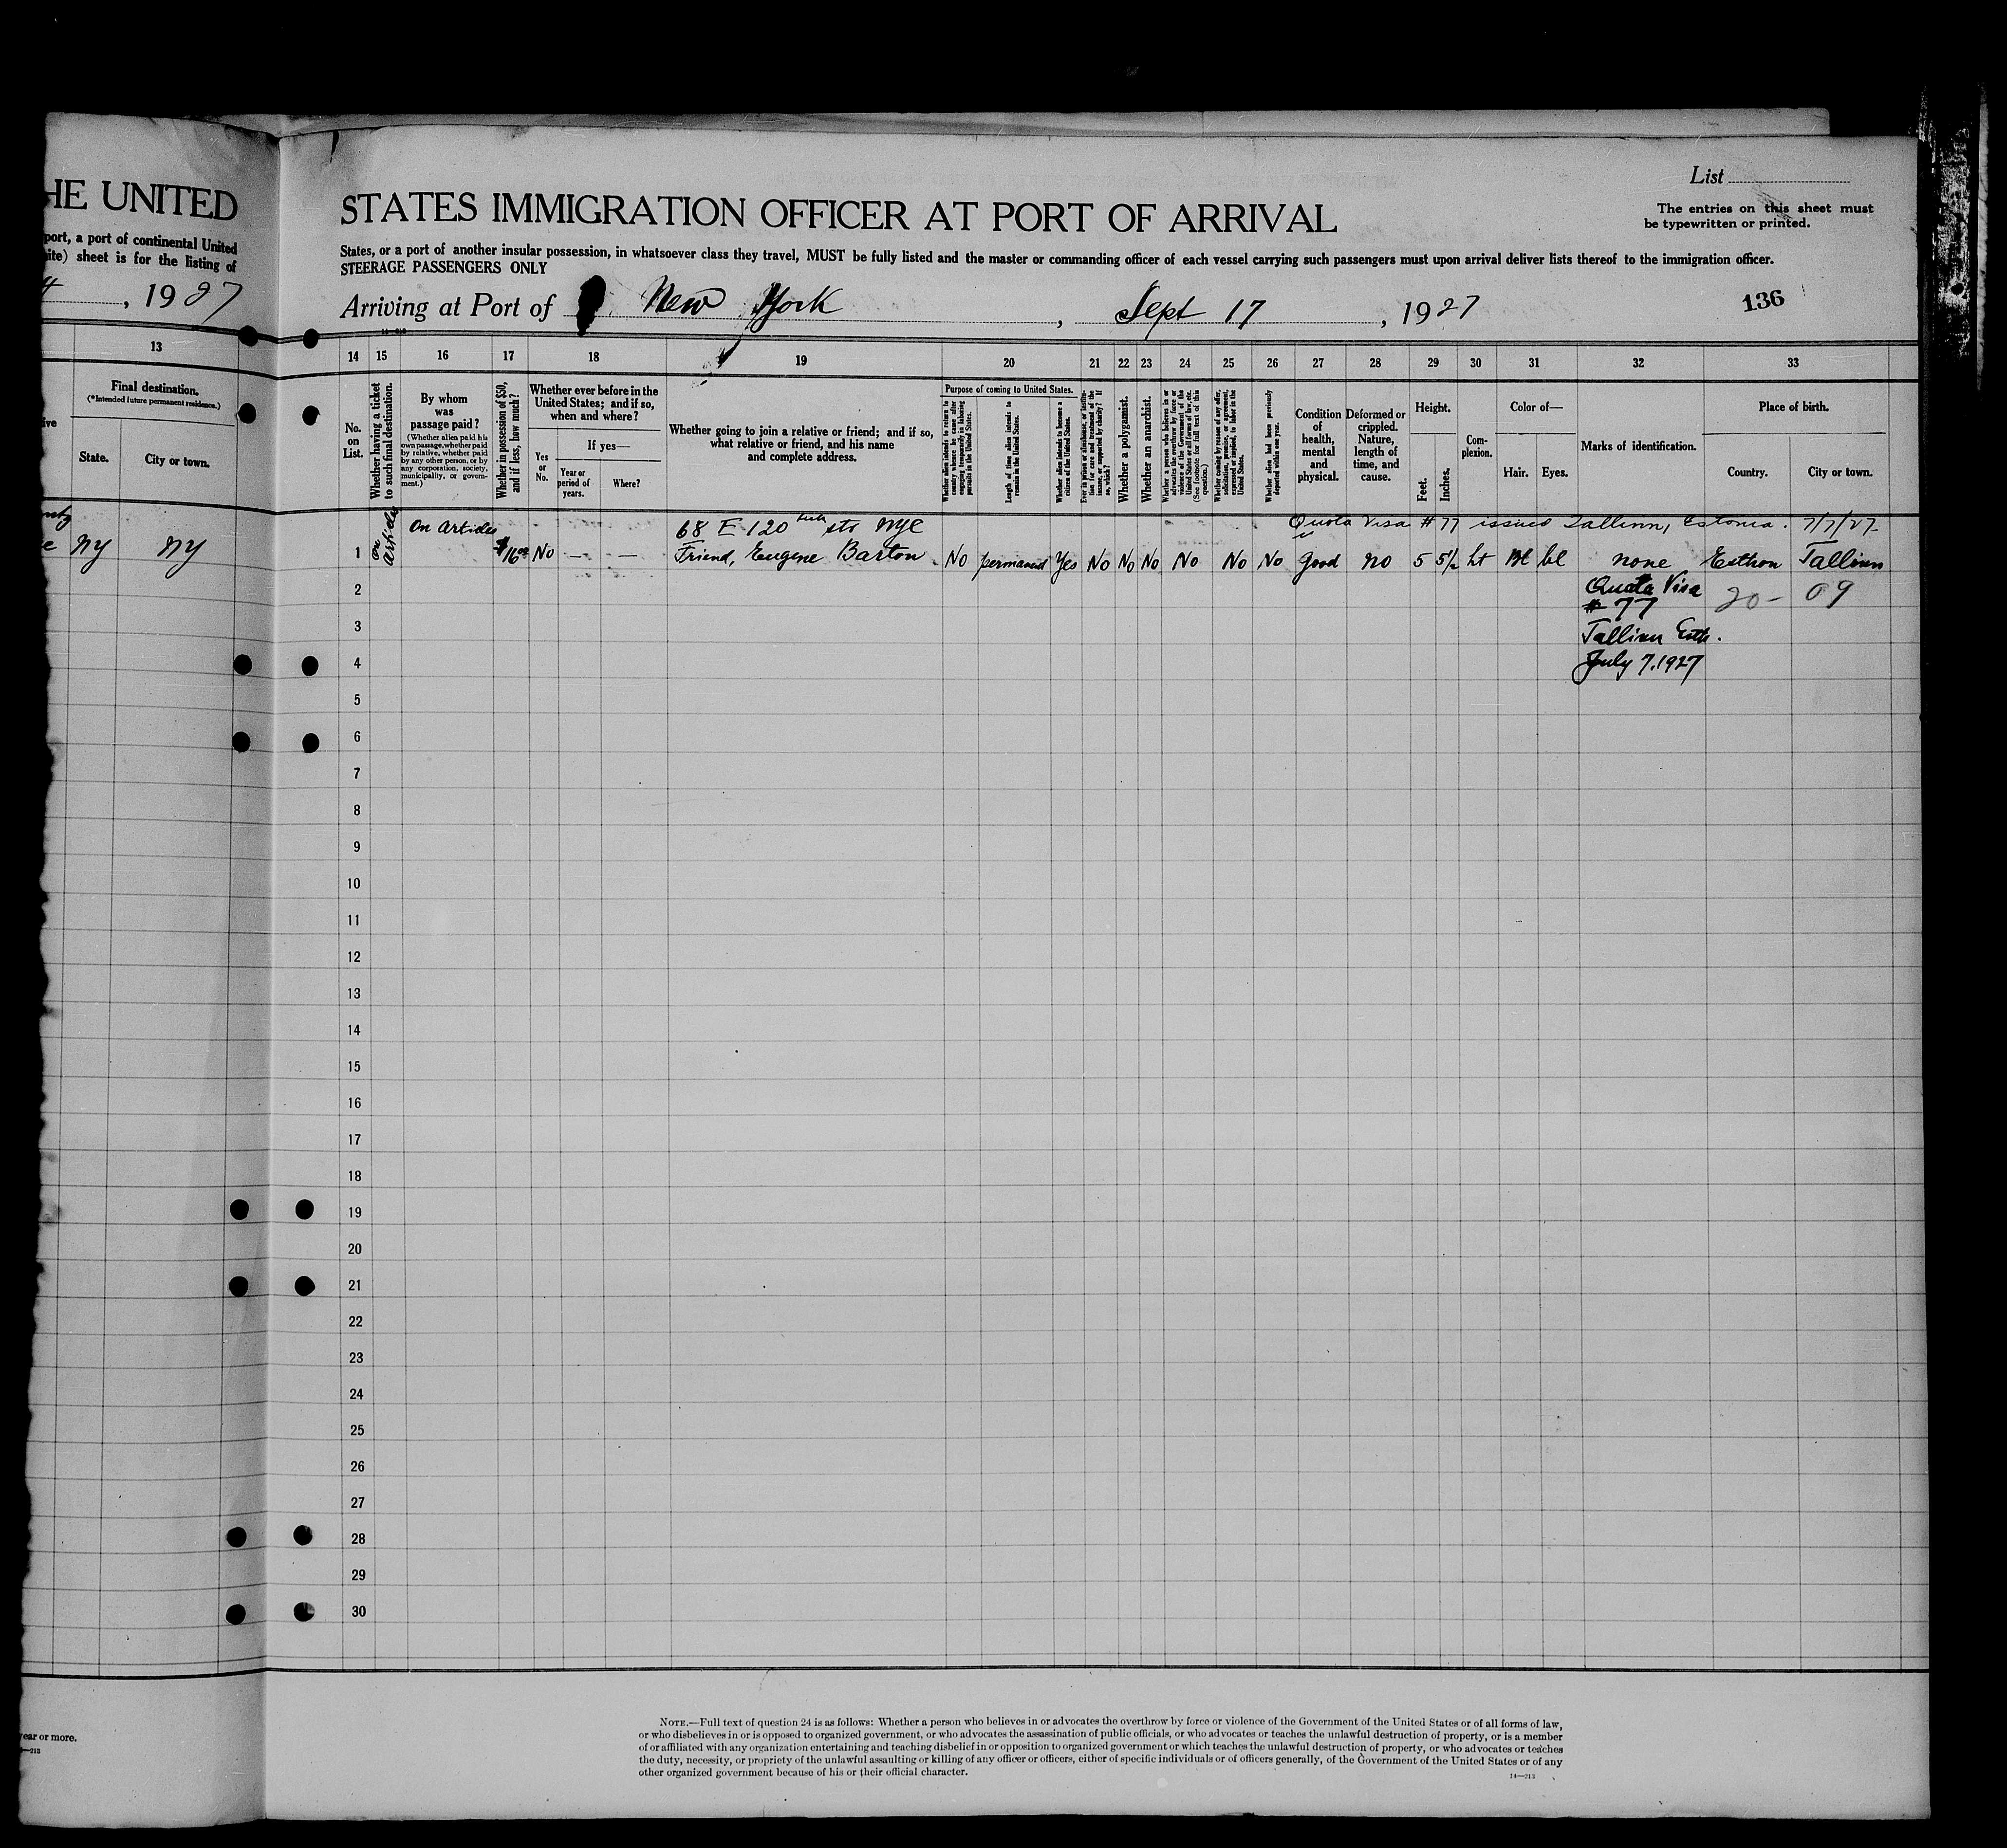 HE UNITED
port, a port of continental United
ite) sheet is for the listing of
, 1927
13
Final destination.
(*Intended future permanent residence.)
State.
City or town.
NY
NY
year or more.
STATES IMMIGRATION OFFICER AT PORT OF ARRIVAL
List
The entries on this sheet must
be typewritten or printed.
States, or a port of another insular possession, in whatsoever class they travel, MUST be fully listed and the master or commanding officer of each vessel carrying such passengers must upon arrival deliver lists thereof to the immigration officer.
STEERAGE PASSENGERS ONLY
Arriving at Port of New York, Sept 17, 1927
136
14—213
14 15 16 17 18 19 20 21 22 23 24 25 26 27 28 29 30 31 32 33
No.
on
List.
Whether having a ticket
to such final destination.
By whom
was
passage paid?
(Whether alien paid his
own passage, whether paid
by relative, whether paid
by any other person, or by
any corporation, society,
municipality, or govern-
ment.)
Whether in possession of $50,
and if less, how much?
Whether ever before in the
United States; and if so,
when and where?
Yes
or
No.
If yes—
Year or
period of
years.
Where?
Whether going to join a relative or friend; and if so,
what relative or friend, and his name
and complete address.
Purpose of coming to United States.
Whether alien intends to return to
country whence he came after
engaging temporarily in laboring
pursuits in the United States.
Length of time alien intends to
remain in the United States.
Whether alien intends to become a
citizen of the United States.
Ever in prison or almshouse, or institu-
tion for care and treatment of the
insane, or supported by charity? If
so, which?
Whether a polygamist.
Whether an anarchist.
Whether a person who believes in or
advocates the overthrow by force or
violence of the Government of the
United States or all forms of law, etc.
(See footnote for full text of this
question.)
Whether coming by reason of any offer,
solicitation, promise, or agreement,
expressed or implied, to labor in the
United States.
Whether alien had been previously
deported within one year.
Condition
of
health,
mental
and
physical.
Deformed or
crippled.
Nature,
length of
time, and
cause.
Height.
Feet.
Inches.
Com-
plexion.
Color of—
Hair.
Eyes.
Marks of identification.
Place of birth.
Country.
City or town.
On Articles
68 E 120 sts NYC
Quota Visa #77 issued Tallinn, Estonia. 7/7/27
1 On Articles $16.00 No — — Friend, Eugene Barton No permanent Yes No No No No No No good no 5 5½ lt Bl bl none Esthon Tallinn
2 Quota Visa 20- 09
# 77
3
Tallinn Esth.
4 July 7, 1927
5
6
7
8
9
10
11
12
13
14
15
16
17
18
19
20
21
22
23
24
25
26
27
28
29
30
NOTE.—Full text of question 24 is as follows: Whether a person who believes in or advocates the overthrow by force or violence of the Government of the United States or of all forms of law,
or who disbelieves in or is opposed to organized government, or who advocates the assassination of public officials, or who advocates or teaches the unlawful destruction of property, or is a member
of or affiliated with any organization entertaining and teaching disbelief in or opposition to organized government or which teaches the unlawful destruction of property, or who advocates or teaches
the duty, necessity, or propriety of the unlawful assaulting or killing of any officer or officers, either of specific individuals or of officers generally, of the Government of the United States or of any
other organized government because of his or their official character.
14—213